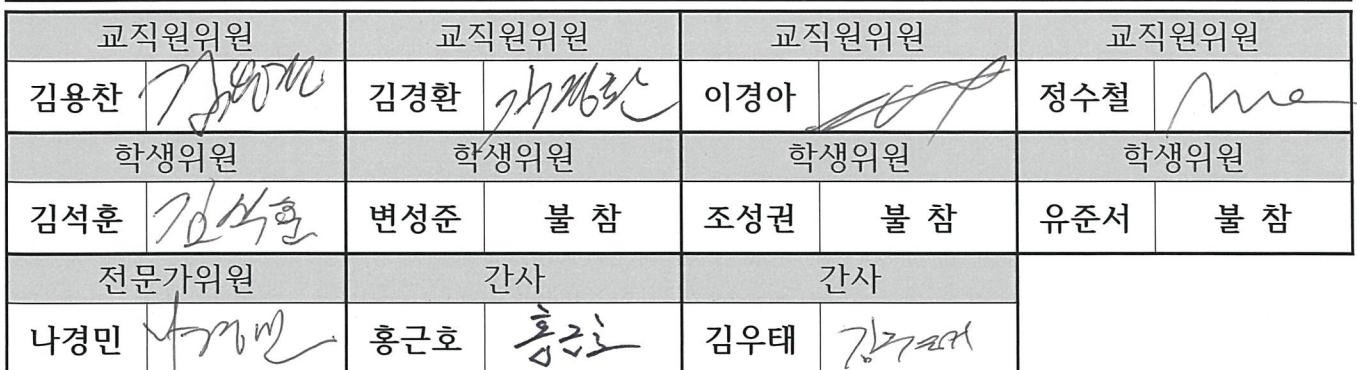 교직원위원 교직원위원 교직원위원 교직원위원
김용찬 김용찬 김경환 김경환 이경아 정수철
학생위원 학생위원 학생위원 학생위원
김석훈 김석훈 변성준 불 참 조성권 불 참 유준서 불 참
전문가위원 간사 간사
나경민 나경민 홍근호 홍근호 김우태 김우태